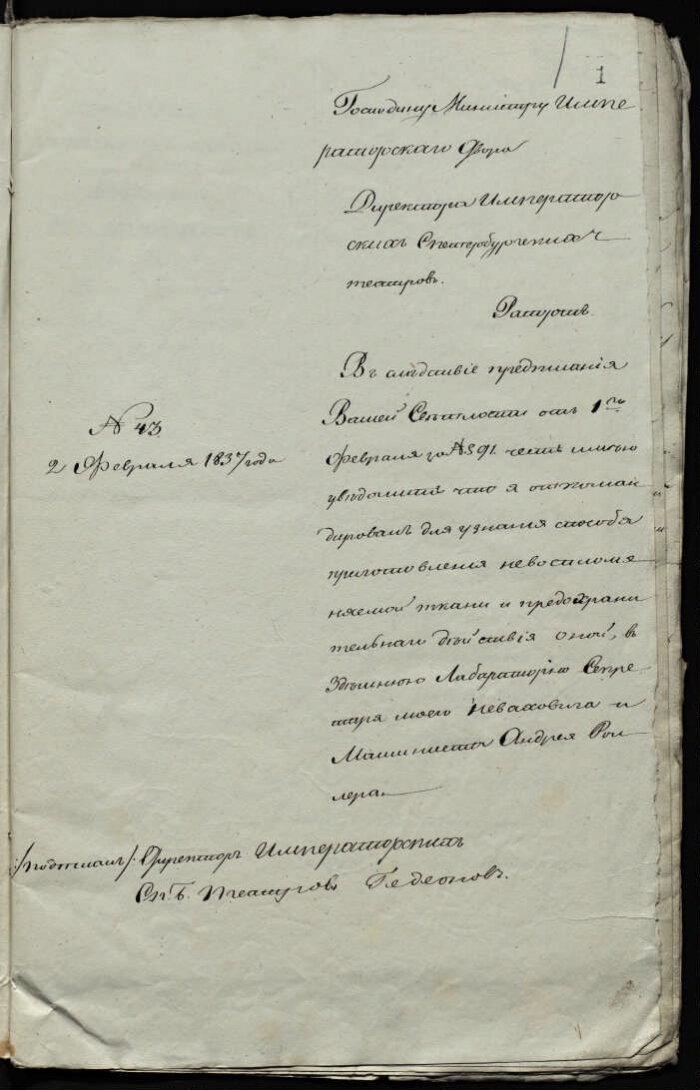 1
Господину Министру Импе
раторскаго Двора
Директора Император
скихъ Спетербургскихъ
театровъ.
Рапортъ.
Въ следствіе предписанія
Вашей Светлости отъ 1го
№ 43
2 Февраля 1837 года
Февраля за № 391. честь имею
уведомить что я откоман
дировалъ для узнания способа
приготовления невоспламе
няемой ткани и предохрани
тельнаго действія оной, въ
Здешнюю Лабараторію Секре
таря моего Неваховича и
Машиниста Андрея Рол
лера.
/:подписалъ:/ Директоръ Императорскихъ
Сп.б. театровъ Гедеоновъ.